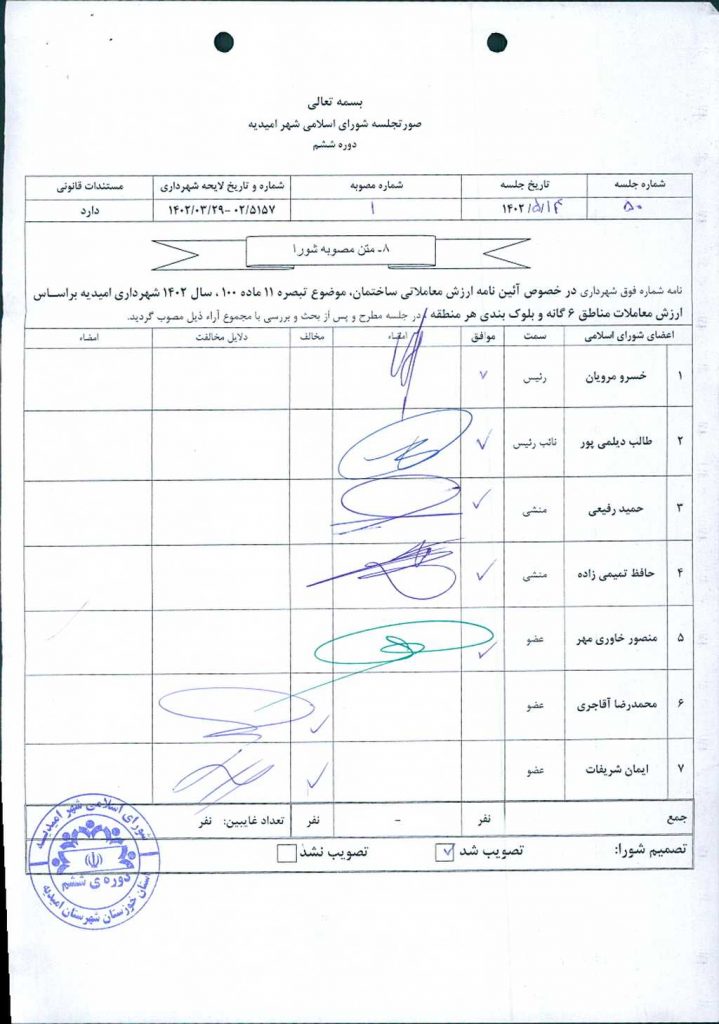 بسمه تعالی
صورتجلسه شورای اسلامی شهر امیدیه
دوره ششم
شماره جلسه تاریخ جلسه شماره مصوبه شماره و تاریخ لایحه شهرداری مستندات قانونی
۵۰ ۱۴۰۲/۵/۱۴ ۱ ۰۲/۵۱۵۷ -۱۴۰۲/۰۳/۲۹ دارد
۸ـ متن مصوبه شورا
نامه شماره فوق شهرداری در خصوص آئین نامه ارزش معاملاتی ساختمان، موضوع تبصره ۱۱ ماده ۱۰۰ ، سال ۱۴۰۲ شهرداری امیدیه براساس
ارزش معاملات مناطق ۶ گانه و بلوک بندی هر منطقه در جلسه مطرح و پس از بحث و بررسی با مجموع آراء ذیل مصوب گردید.
اعضای شورای اسلامی سمت موافق امضاء مخالف دلایل مخالفت امضاء
۱ خسرو مرویان رئیس
۲ طالب دیلمی پور نائب رئیس
۳ حمید رفیعی منشی
۴ حافظ تمیمی زاده منشی
۵ منصور خاوری مهر عضو
۶ محمدرضا آقاجری عضو
۷ ایمان شریفات عضو
جمع نفر - نفر تعداد غایبین: نفر
تصمیم شورا: تصویب شد تصویب نشد
شورای اسلامی شهر امیدیه
دوره ی ششم
استان خوزستان شهرستان امیدیه